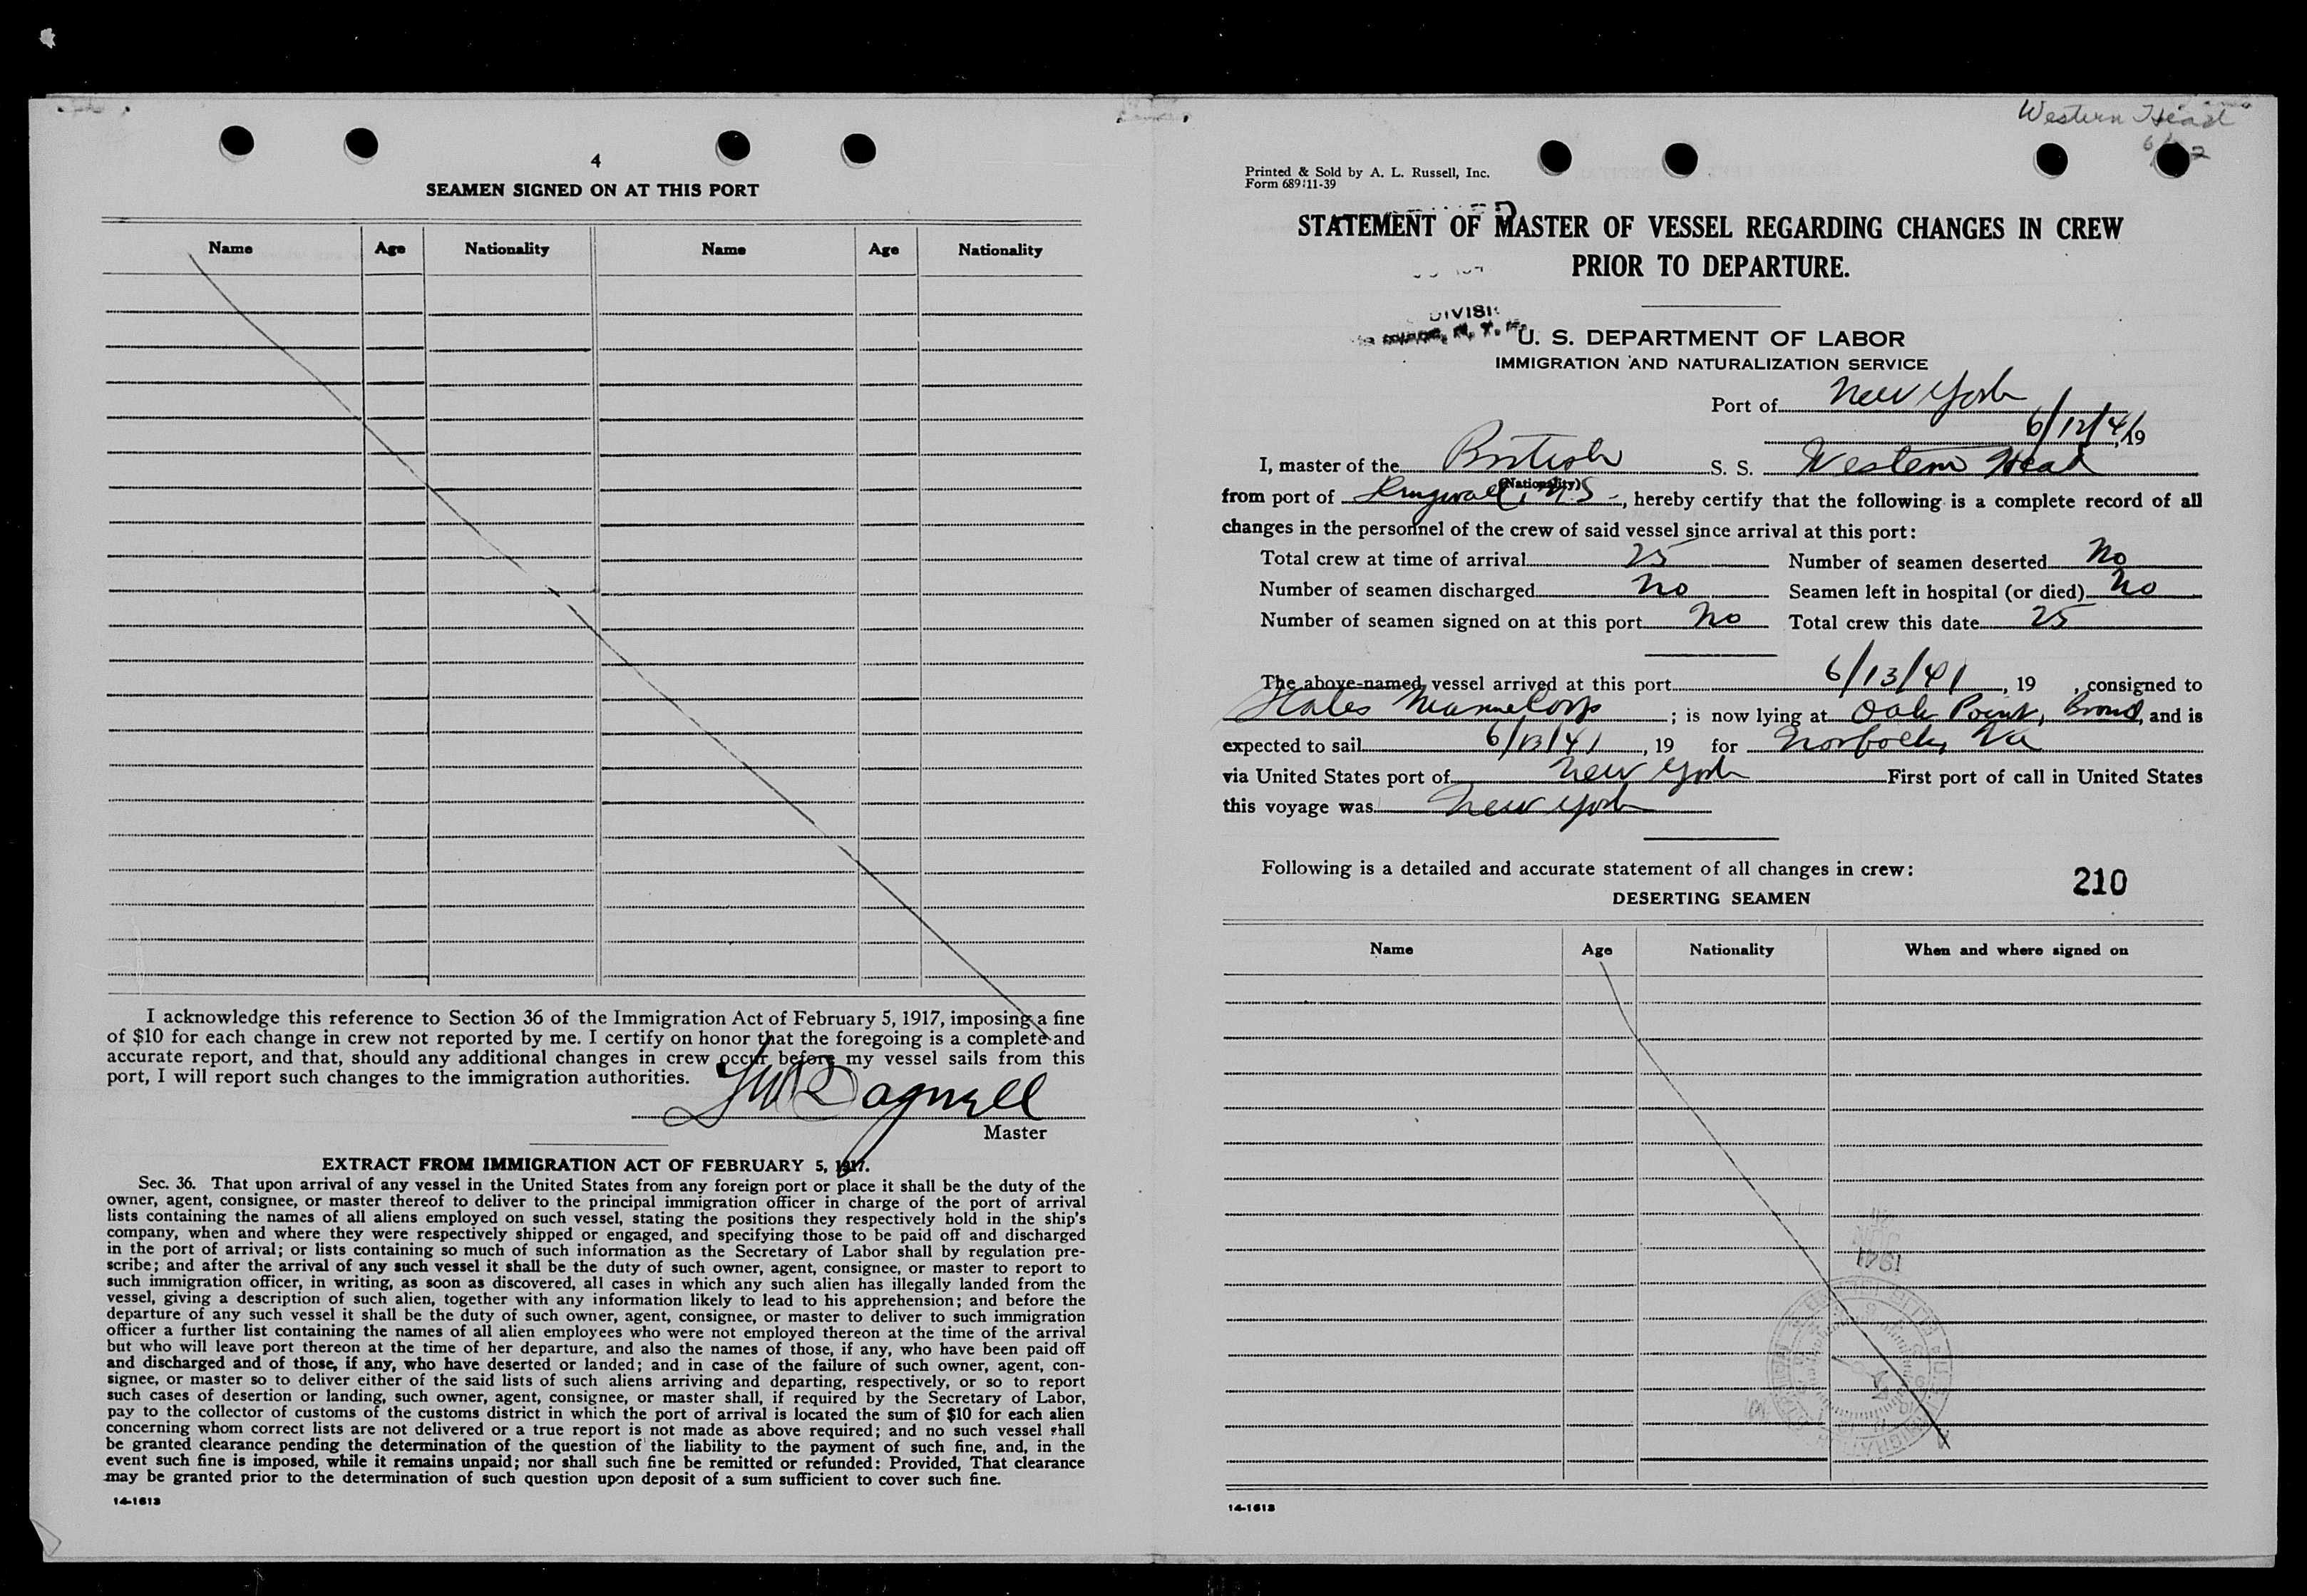 4
SEAMEN SIGNED ON AT THIS PORT
Name Age Nationality Name Age Nationality
I acknowledge this reference to Section 36 of the Immigration Act of February 5, 1917, imposing a fine
of $10 for each change in crew not reported by me. I certify on honor that the foregoing is a complete and
accurate report, and that, should any additional changes in crew occur before my vessel sails from this
port, I will report such changes to the immigration authorities.
Bagnell
Master
EXTRACT FROM IMMIGRATION ACT OF FEBRUARY 5, 1917.
Sec. 36. That upon arrival of any vessel in the United States from any foreign port or place it shall be the duty of the
owner, agent, consignee, or master thereof to deliver to the principal immigration officer in charge of the port of arrival
lists containing the names of all aliens employed on such vessel, stating the positions they respectively hold in the ship's
company, when and where they were respectively shipped or engaged, and specifying those to be paid off and discharged
in the port of arrival; or lists containing so much of such information as the Secretary of Labor shall by regulation pre-
scribe; and after the arrival of any such vessel it shall be the duty of such owner, agent, consignee, or master to report to
such immigration officer, in writing, as soon as discovered, all cases in which any such alien has illegally landed from the
vessel, giving a description of such alien, together with any information likely to lead to his apprehension; and before the
departure of any such vessel it shall be the duty of such owner, agent, consignee, or master to deliver to such immigration
officer a further list containing the names of all alien employees who were not employed thereon at the time of the arrival
but who will leave port thereon at the time of her departure, and also the names of those, if any, who have been paid off
and discharged and of those, if any, who have deserted or landed; and in case of the failure of such owner, agent, con-
signee, or master so to deliver either of the said lists of such aliens arriving and departing, respectively, or so to report
such cases of desertion or landing, such owner, agent, consignee, or master shall, if required by the Secretary of Labor,
pay to the collector of customs of the customs district in which the port of arrival is located the sum of $10 for each alien
concerning whom correct lists are not delivered or a true report is not made as above required; and no such vessel shall
be granted clearance pending the determination of the question of the liability to the payment of such fine, and, in the
event such fine is imposed, while it remains unpaid; nor shall such fine be remitted or refunded: Provided, That clearance
may be granted prior to the determination of such question upon deposit of a sum sufficient to cover such fine.
14-1613
Western Head
Printed & Sold by A. L. Russell, Inc.
Form 689:11-39
STATEMENT OF MASTER OF VESSEL REGARDING CHANGES IN CREW
PRIOR TO DEPARTURE.
U. S. DEPARTMENT OF LABOR
IMMIGRATION AND NATURALIZATION SERVICE
Port of New York
6/12/41, 19
I, master of the British S. S. Western Head
(Nationality)
from port of N.S -, hereby certify that the following is a complete record of all
changes in the personnel of the crew of said vessel since arrival at this port:
Total crew at time of arrival 25 Number of seamen deserted No
Number of seamen discharged No Seamen left in hospital (or died) No
Number of seamen signed on at this port No Total crew this date 25
The above-named vessel arrived at this port 6/13/41, 19 , consigned to
States Marine Corp ; is now lying at Oak Point, Bronx, and is
expected to sail 6/13/41, 19 for Norfolk, Va
via United States port of New York First port of call in United States
this voyage was New York
Following is a detailed and accurate statement of all changes in crew:
DESERTING SEAMEN
210
Name Age Nationality When and where signed on
1941
14-1613